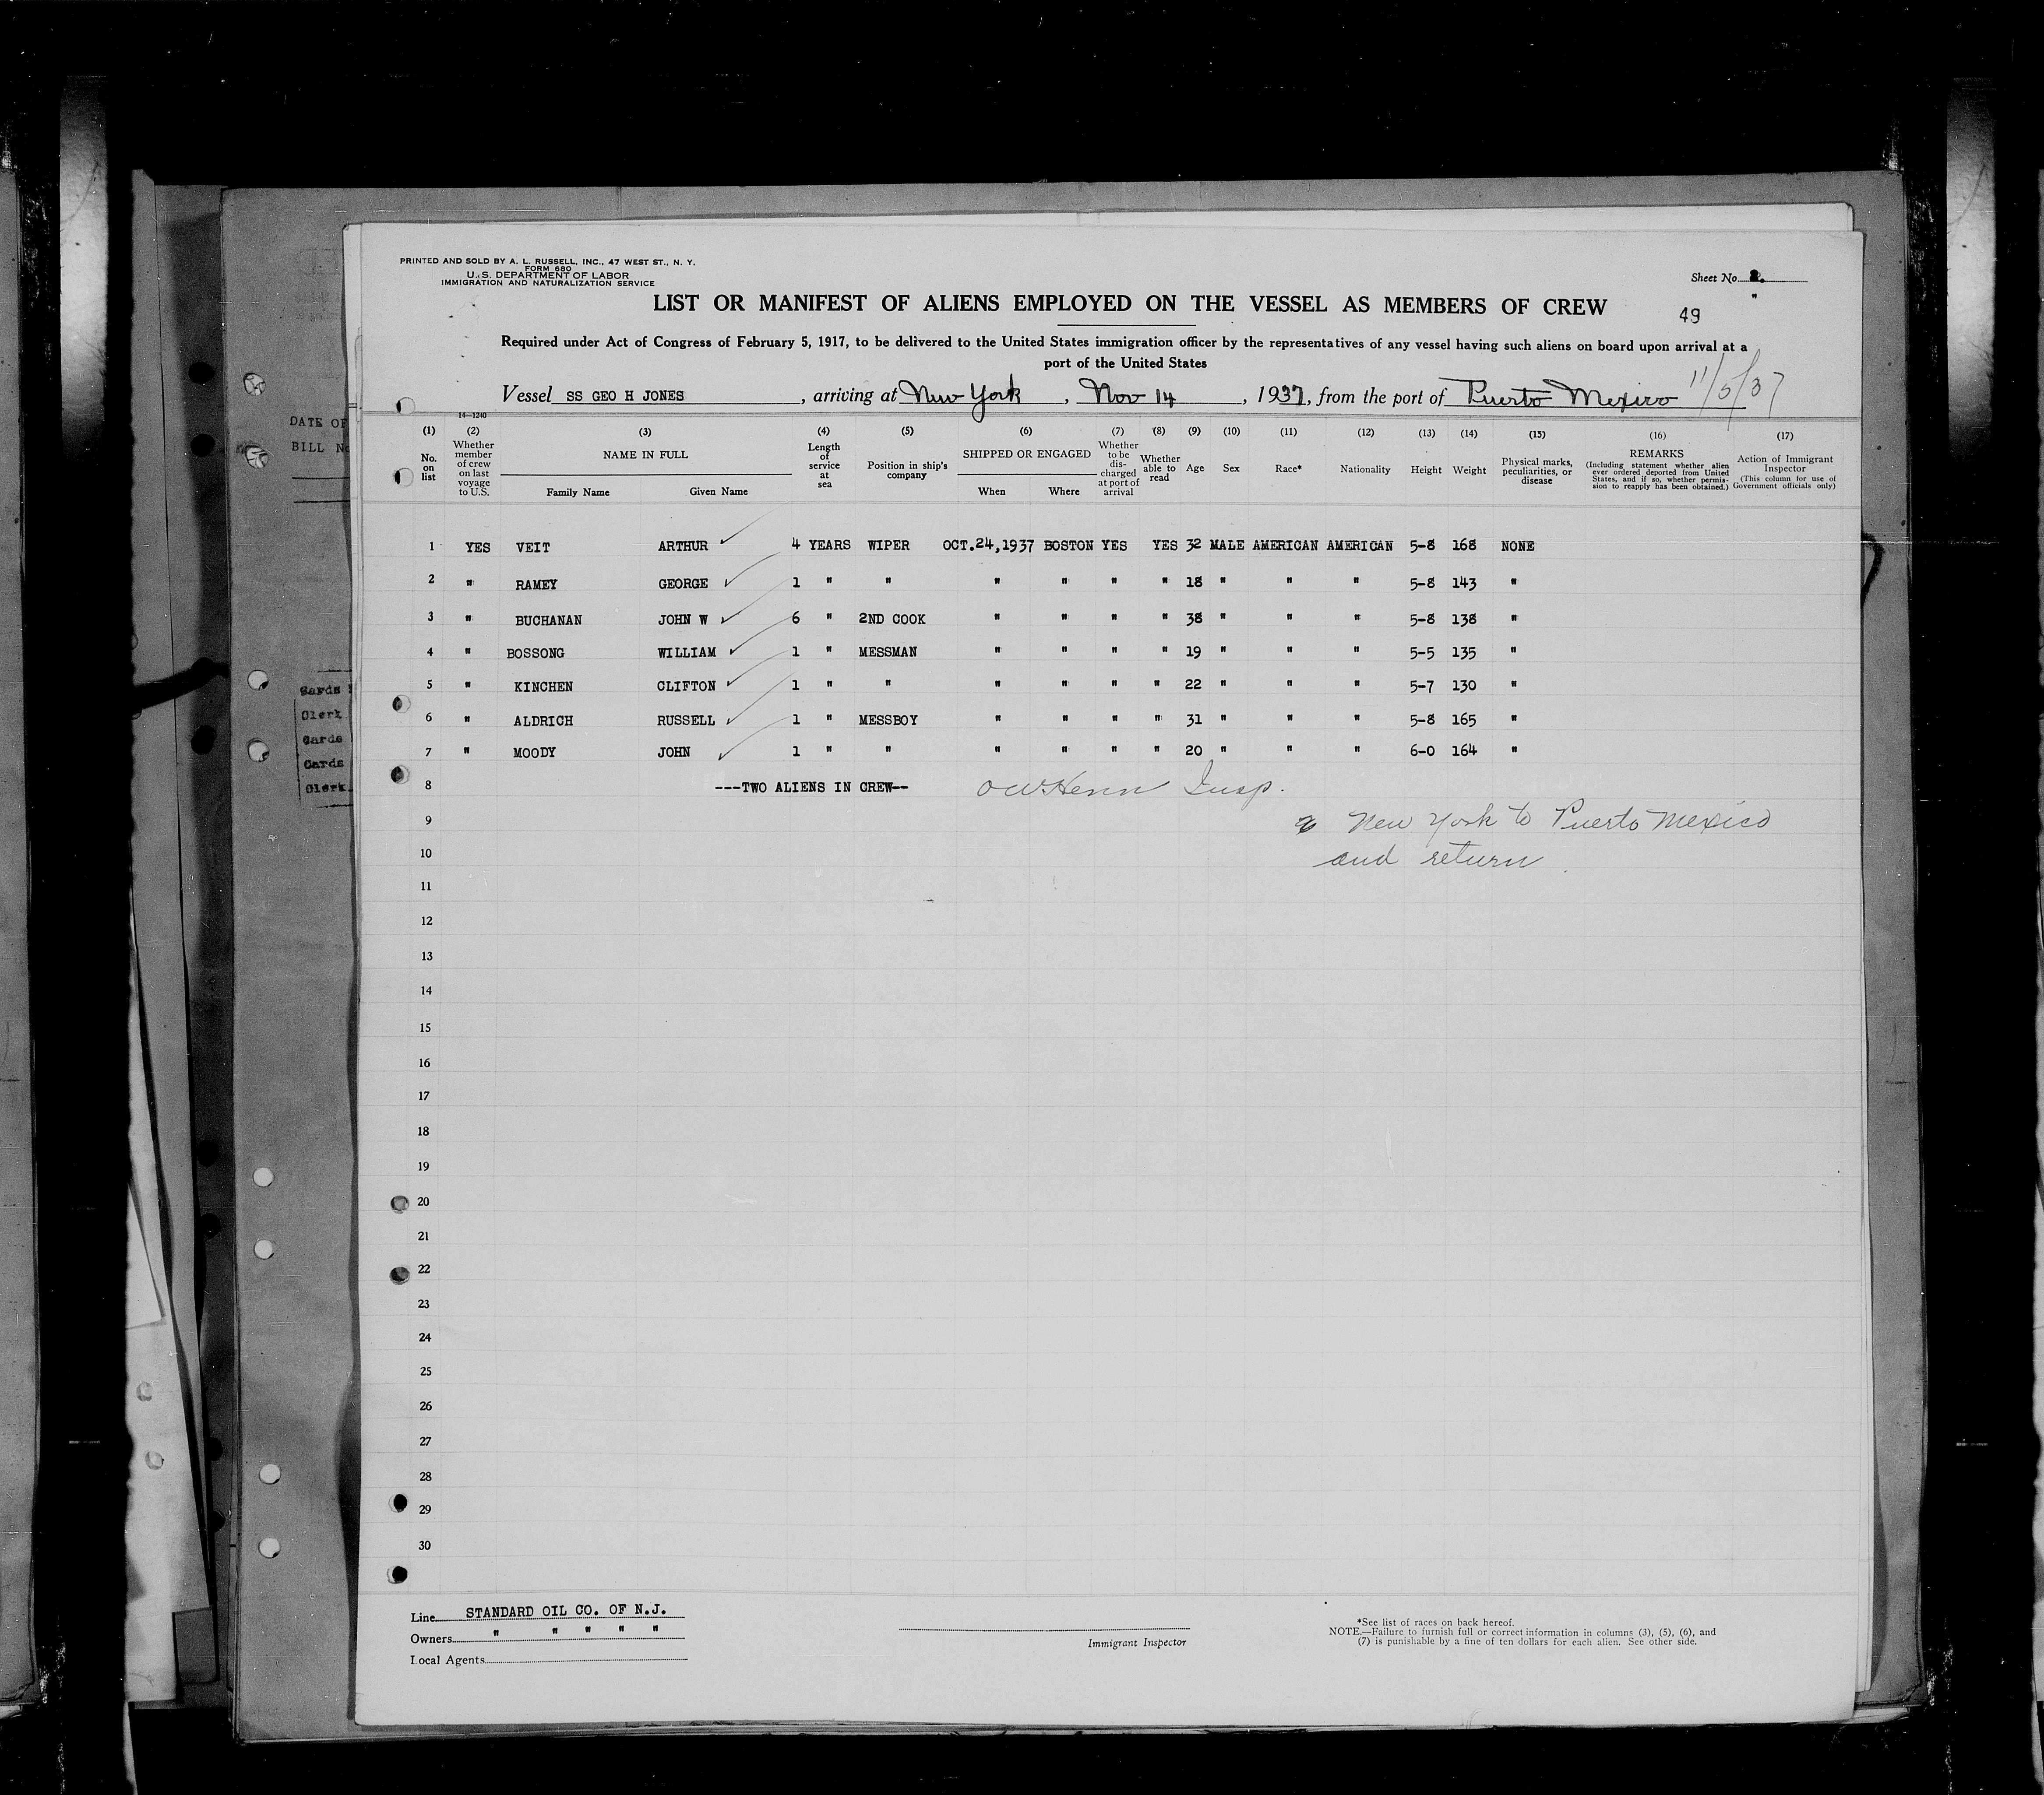 PRINTED AND SOLD BY A. L. RUSSELL, INC., 47 WEST ST., N. Y.
FORM 680
U. S. DEPARTMENT OF LABOR
IMMIGRATION AND NATURALIZATION SERVICE
Sheet No. 2.
LIST OR MANIFEST OF ALIENS EMPLOYED ON THE VESSEL AS MEMBERS OF CREW
49
Required under Act of Congress of February 5, 1917, to be delivered to the United States immigration officer by the representatives of any vessel having such aliens on board upon arrival at a
port of the United States
11/5/37
Vessel SS GEO H JONES, arriving at New York, Nov 14, 1937, from the port of Puerto Mexico
14—1240
(1) (2) (3) (4) (5) (6) (7) (8) (9) (10) (11) (12) (13) (14) (15) (16) (17)
No. on list
Whether member of crew on last voyage to U.S.
NAME IN FULL
Family Name Given Name
Length of service at sea
Position in ship's company
SHIPPED OR ENGAGED
When Where
Whether to be discharged at port of arrival
Whether able to read
Age Sex Race* Nationality Height Weight
Physical marks, peculiarities, or disease
REMARKS
(Including statement whether alien ever ordered deported from United States, and if so, whether permission to reapply has been obtained.)
Action of Immigrant Inspector
(This column for use of Government officials only)
1 YES VEIT ARTHUR ✓ 4 YEARS WIPER OCT.24,1937 BOSTON YES YES 32 MALE AMERICAN AMERICAN 5-8 168 NONE
2 " RAMEY GEORGE ✓ 1 " " " " " " 18 " " " 5-8 143 "
3 " BUCHANAN JOHN W ✓ 6 " 2ND COOK " " " " 38 " " " 5-8 138 "
4 " BOSSONG WILLIAM ✓ 1 " MESSMAN " " " " 19 " " " 5-5 135 "
5 " KINCHEN CLIFTON ✓ 1 " " " " " " 22 " " " 5-7 130 "
6 " ALDRICH RUSSELL ✓ 1 " MESSBOY " " " " 31 " " " 5-8 165 "
7 " MOODY JOHN ✓ 1 " " " " " " 20 " " " 6-0 164 "
8 ---TWO ALIENS IN CREW-- Insp.
9 New York to Puerto Mexico
10 and return
11
12
13
14
15
16
17
18
19
20
21
22
23
24
25
26
27
28
29
30
Line STANDARD OIL CO. OF N.J.
Owners " " " " "
Local Agents
Immigrant Inspector
*See list of races on back hereof.
NOTE.—Failure to furnish full or correct information in columns (3), (5), (6), and
(7) is punishable by a fine of ten dollars for each alien. See other side.
DATE OF
BILL No
Cards
Clerk
Cards
Cards
Clerk